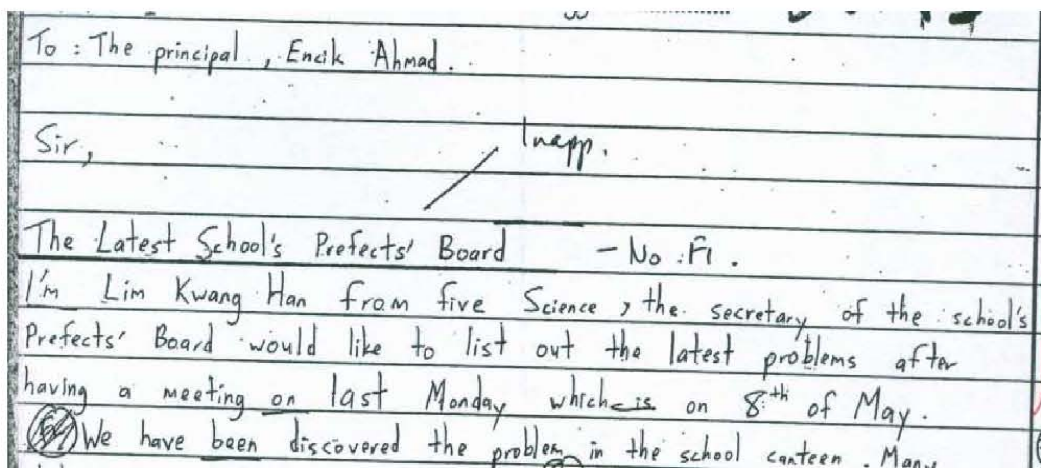 To : The principal , Encik Ahmad .
Sir,
Inapp.
The Latest School's Prefects' Board - No F1 .
I'm Lim Kwang Han from five Science , the secretary of the school's
Prefects' Board would like to list out the latest problems after
having a meeting on last Monday which is on 8th of May .
We have been discovered the problem in the school canteen . Many